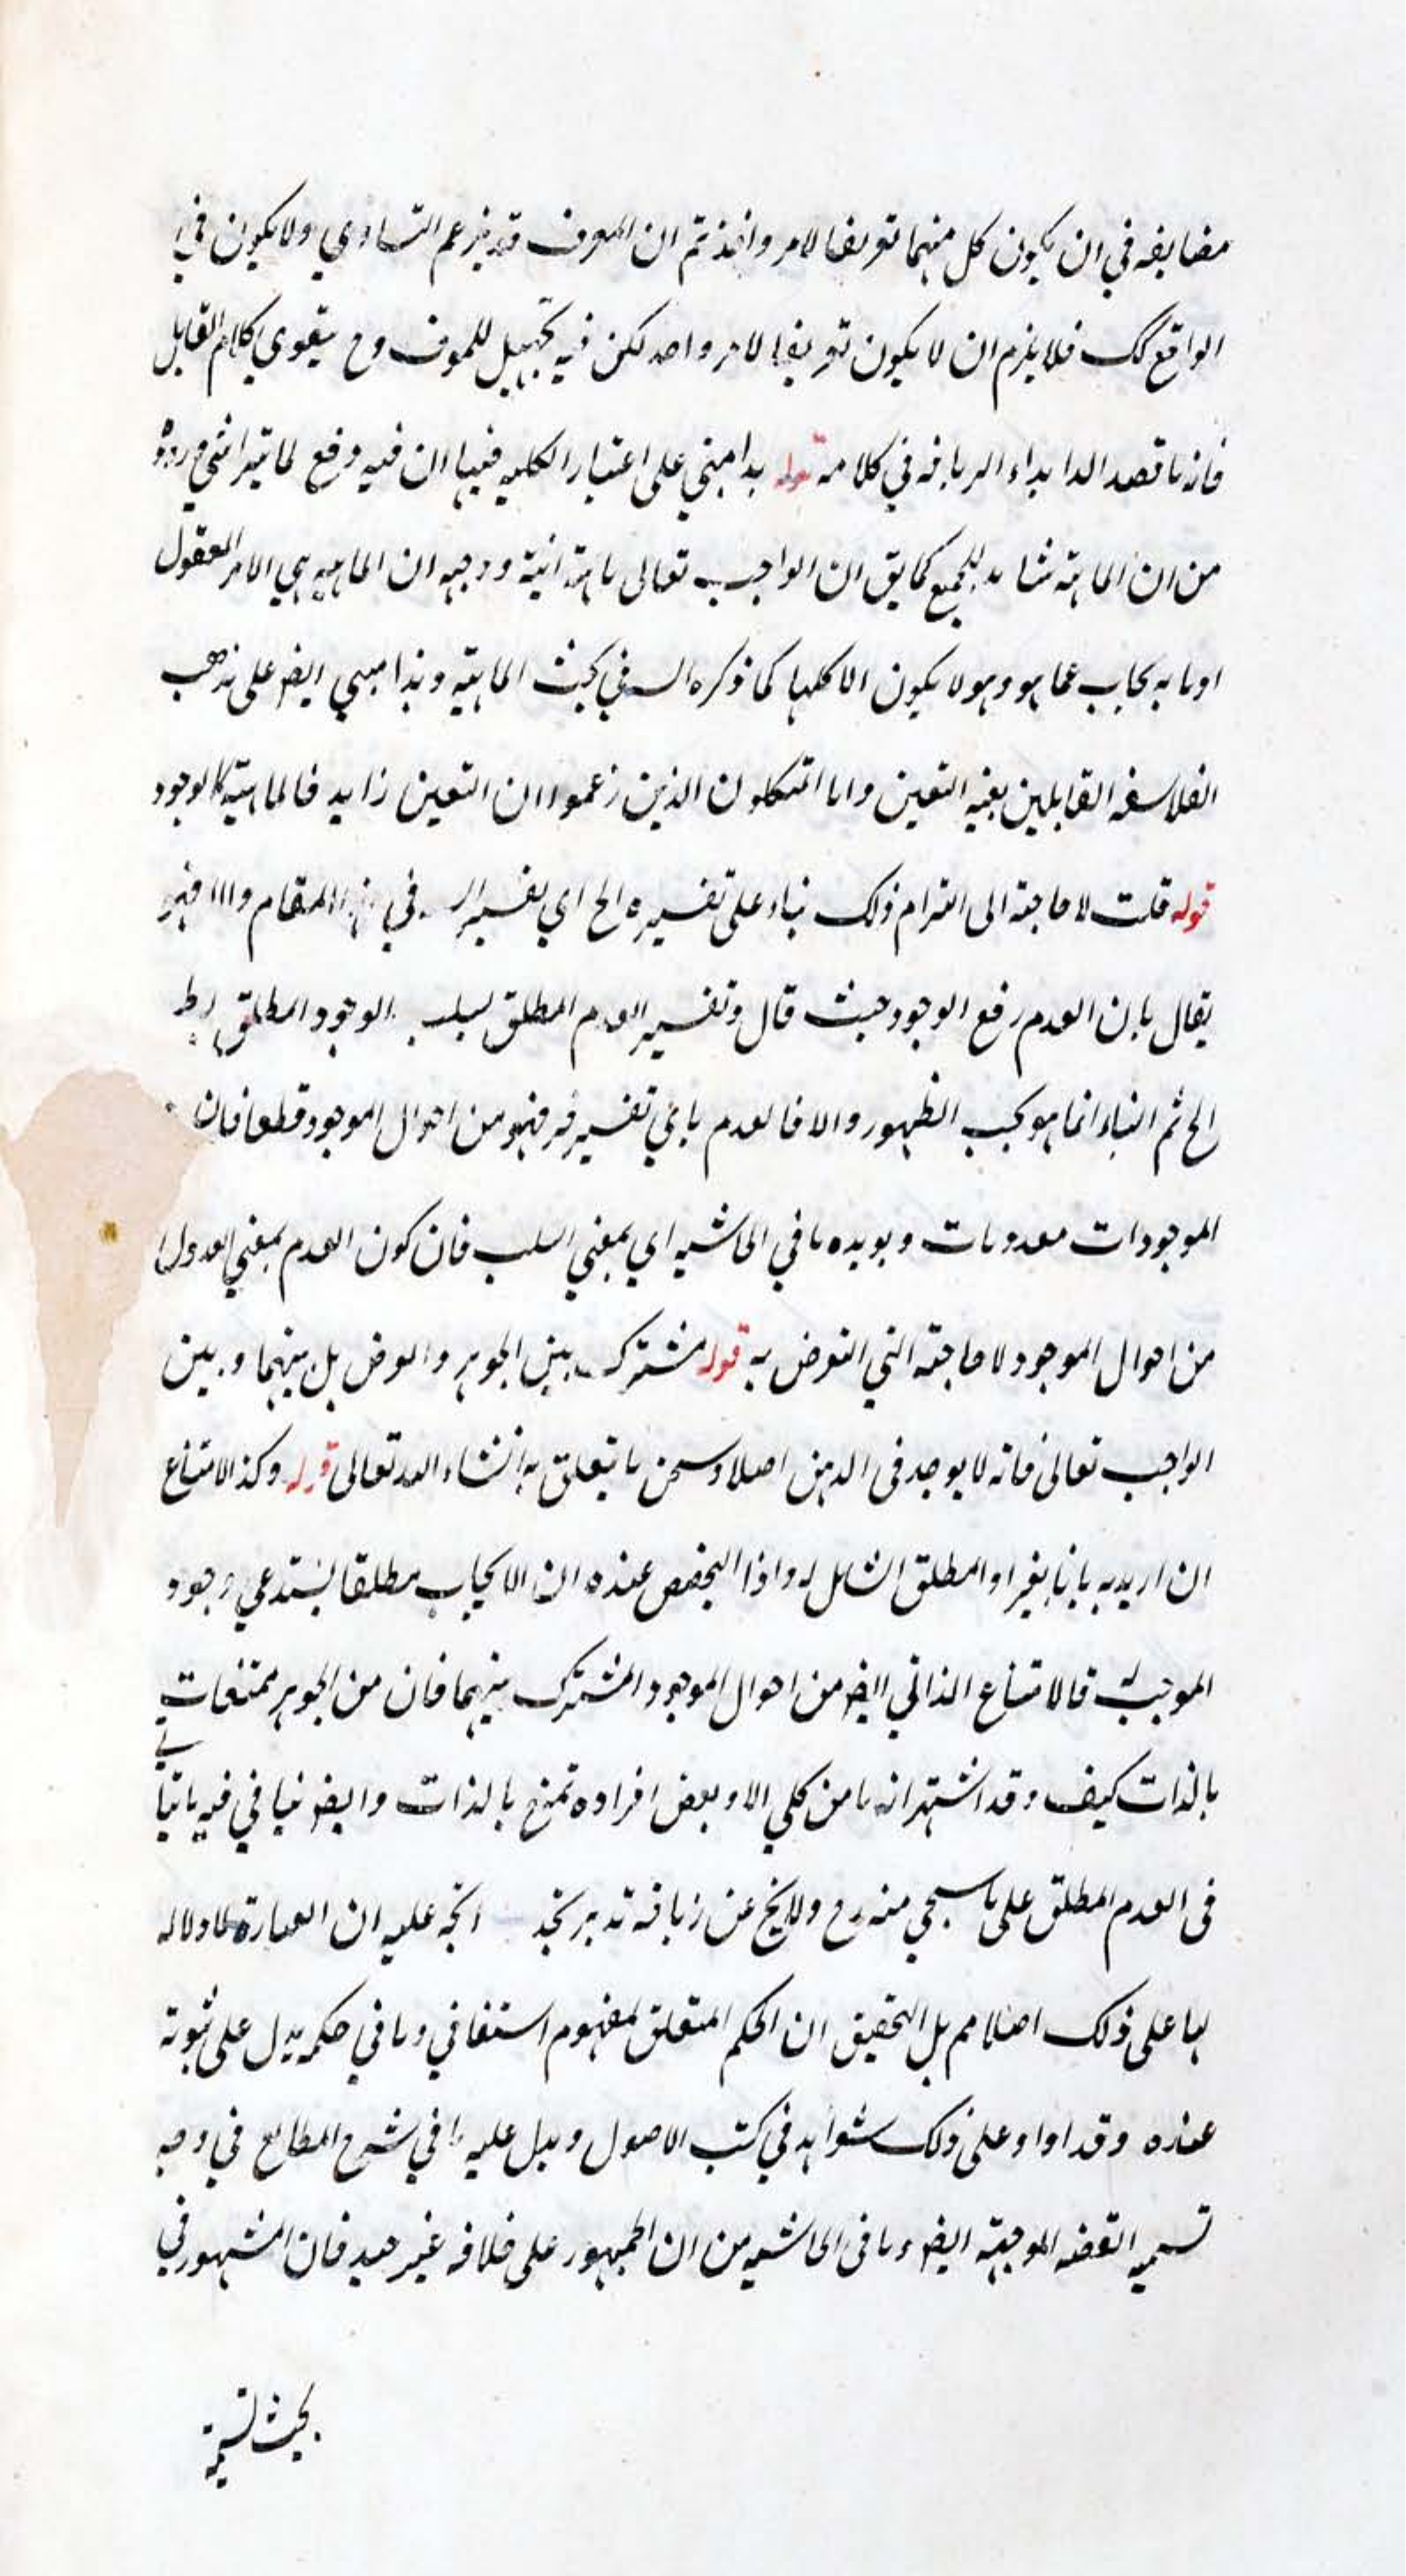 مضايقه في ان يكون كل منهما تعريفا لامر واحد ثم ان المعرف قد يزعم التساوي ولا يكون في
الواقع كك فلا يلزم ان لا يكون تعريفا لامر واحد لكن فيه تجهيل للمعرف وح يتقوي كلام القايل
فانه ما قصد الا ابداء في كلامه قوله هذا مبني على اعتبار الكلية فيها ان فيه دفع لما يتراشي وروده
من ان الماهية شامله للجميع كما يق ان الواجب تعالى ماهيته انيته ووجهه ان الماهيه هي الامر المعقول
او ما به يجاب عما هو وهو لا يكون الا كليا كما ذكره السـ في بحث الماهيته وهذا مبني ايضو على مذهب
الفلاسفه القايلين بعينيه التعين واما المتكلمون الذين زعموا ان التعين زايد فالماهيته كالوجود
قوله قلت لا حاجته الى التزام ذلك بناء على تفسيره الخ اي تفسير السـ في هذا المقام والا فهو
يقال بان العدم رفع الوجود حيث قال وتفسير العدم المطلق بسلب الوجود المطلق
الخ ثم البناء انما هو بحسب الظهور والا فالعدم باي تفسير فسر فهو من احوال الموجود قطعا فان
الموجودات معدومات ويويده ما في الحاشيه اي بمعني السلب فان كون العدم بمعني العدول
من احوال الموجود لا حاجته الي التعرض به قوله مشترك بين الجوهر والعرض بل بينهما وبين
الواجب تعالى فانه لا يوجد في الذهن اصلا وسيجئ ما يتعلق به انشاء الله تعالى قوله وكذا الامتناع
ان اريد به ما بالغير او المطلق الشامل له واذا عنده ان الايجاب مطلقا يستدعي وجود
الموجب له فالامتناع الذاتي ايضو من احوال الموجود المشترك بينهما فان من الجوهر ممتنعات
بالذات كيف وقد اشتهر انه ما من كلي الا وبعض افراده تمتنع بالذات وايضو ينافي فيه ما ياتي
في العدم المطلق على ما سيجي منه رح ولا يخ عن زيافه تدبر تجد اتجه عليه ان العبارة لا دلاله
لها على ذلك اصلا مم بل التحقيق ان الحكم المتعلق لمفهوم استغنافي وما في حكمه يدل على ثبوته
عنده وقد اوا وعلى ذلك شواهد في كتب الاصول ويدل عليه ما في شرح المطالع في وجه
تسميه القضيه الموجهته ايضو وما في الحاشيه من ان الجمهور على خلافه غير جيد فان المشهور في
بحث تسمية